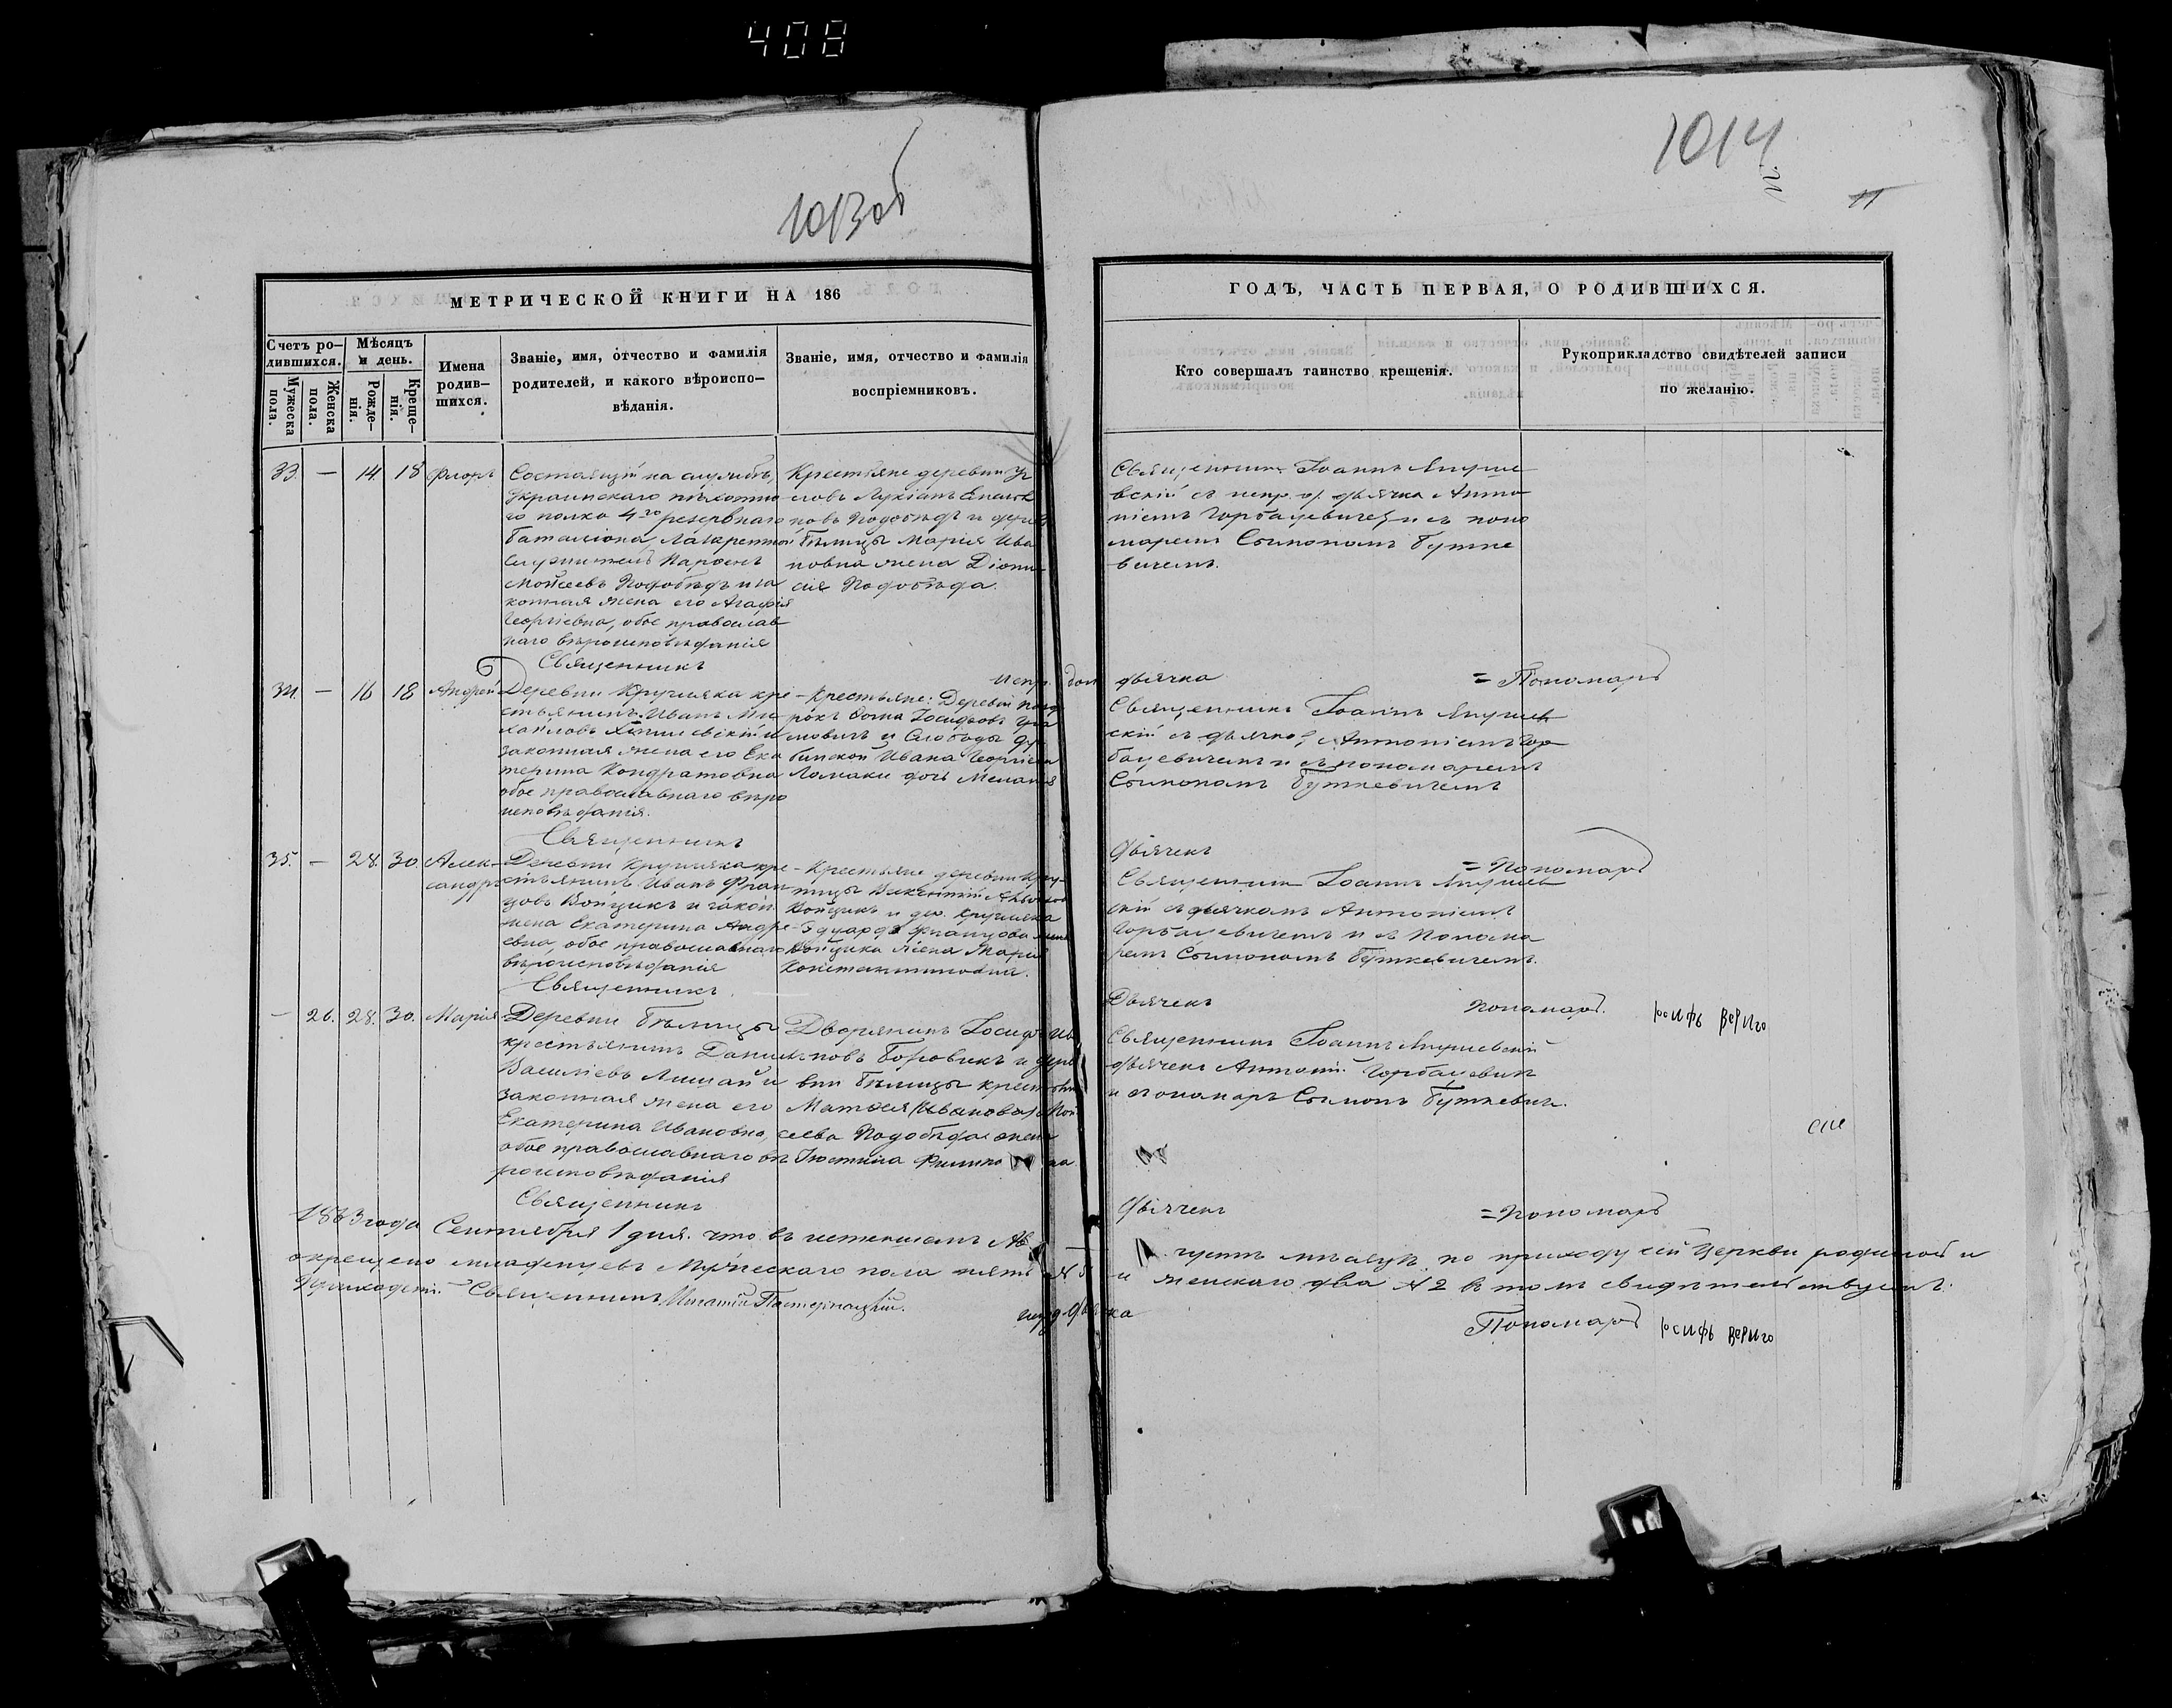 408
1013 об
1014
11
МЕТРИЧЕСКОЙ КНИГИ НА 186
Счетъ ро-
дившихся.
Мѣсяцъ
и день.
Мужеска
пола.
Женска
пола.
Рожде-
нія.
Креще-
нія.
Имена
родив-
шихся.
Званіе, имя, отчество и фамилія
родителей, и какого вѣроиспо-
вѣданія.
Званіе, имя, отчество и фамилія
воспріемниковъ.
33. — 14. 18 Флоръ
Состоящій на службѣ,
Украинскаго пѣхотна
го полка 4го резервнаго
баталіона
служитель Парѳенъ
Моѵсеевъ Подобѣдъ и за
конная жена его Агафія
Георгіевна, обое православ
наго вѣроисповѣданія
Священникъ
Крестьяне деревни
Лукіанъ
новъ Подобѣдъ и дерев
Бѣлицы Марія Ива
новна жена Діони
сія Подобѣда.
34. — 16 18 Андрей
Деревни Кругляка кре
стьянинъ Иванъ Ми
хайловъ и
законная жена его Ека
терина Кондратовна
обое православнаго вѣро
исповѣданія.
Священникъ
Крестьяне: Деревни
Ѳома Іосифовъ
и Слободы
Ивана Георгіева
Ломаки дочь Меланія
35. — 28. 30. Алек-
сандръ
Деревни Кругляка кре
стьянинъ Иванъ Фран
цовъ Войцикъ и закон.
жена Екатерина Андре
евна, обое православнаго
вѣроисповѣданія
Священникъ
Крестьяне деревни
Викентій
Войцикъ и дер. Кругляка
Эдуарда Францова
Войцика жена Марія
Константинова.
— 26. 28. 30. Марія
Деревни Бѣлицы
крестьянинъ Даніилъ
Васильевъ и
законная жена его
Екатерина Ивановна,
обое православнаго вѣ
роисповѣданія
Священникъ
Дворянинъ Іосифъ Ив
новъ Боровикъ и дере
вни Бѣлицы крестьян
Матѳея Иванова
сеева Подобѣда жена
Іюстина
1863 года Сентября 1 дня. что въ истекшемъ Ав
окрещено младенцевъ Мужескаго пола пять № 5
Священникъ Игнатій Пастернацкій.
ГОДЪ, ЧАСТЬ ПЕРВАЯ, О РОДИВШИХСЯ.
Кто совершалъ таинство крещенія.
Рукоприкладство свидѣтелей записи
по желанію.
Священникъ Іоаннъ Янушев
скій съ испр. д. дьячка Анто
ніемъ Горбацевичемъ и съ поно
маремъ Сѵмономъ Бутке
вичемъ.
Испр. дол. дьячка
= Пономарь
Священникъ Іоаннъ Янушев
скій съ дьячко Антоніемъ Гор
бацевичемъ и съ пономаремъ
Сѵмономъ Буткевичемъ
Дьячекъ
= Пономарь
Священникъ Іоаннъ Янушев
скій съ дьячкомъ Антоніемъ
Горбацевичемъ и съ Понома
ремъ Сѵмономъ Буткевичемъ.
Дьячекъ
пономарь. юсифъ вериго
Священникъ Іоаннъ Янушевскій
дьячекъ Антоній Горбацевичъ
и пономарь Сѵмонъ Буткевичъ.
Дьячекъ
= Пономарь
густѣ мѣсяцѣ по приходу сей Церкви родилось и
и женскаго два № 2 въ томъ свидѣтельствуемъ:
дьячка
Пономарь юсифъ вериго